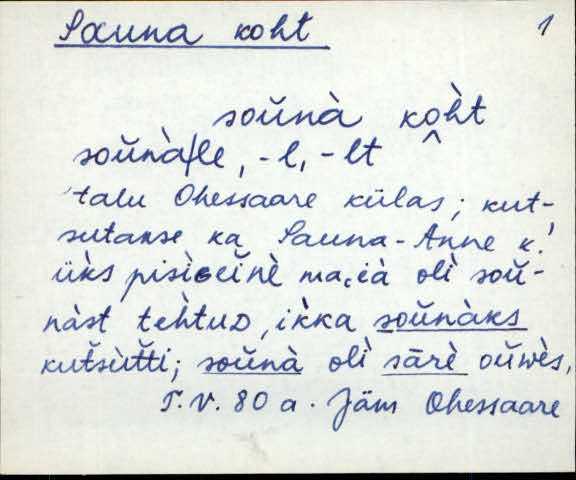 Sauna koht
1
soŭnà kò̭ht
soŭnà|le, -l, -lt
talu Ohessaare külas; kut-
sutakse ka Sauna-Anne k.!
üks̀ pisìɢeĭnè ma.ià olì soŭ-
nàst tehtuᴅ, ikka soŭnàks
kutsùtti; soŭnà olì sārè oŭwès.
T.V. 80 a. Jäm Ohessaare